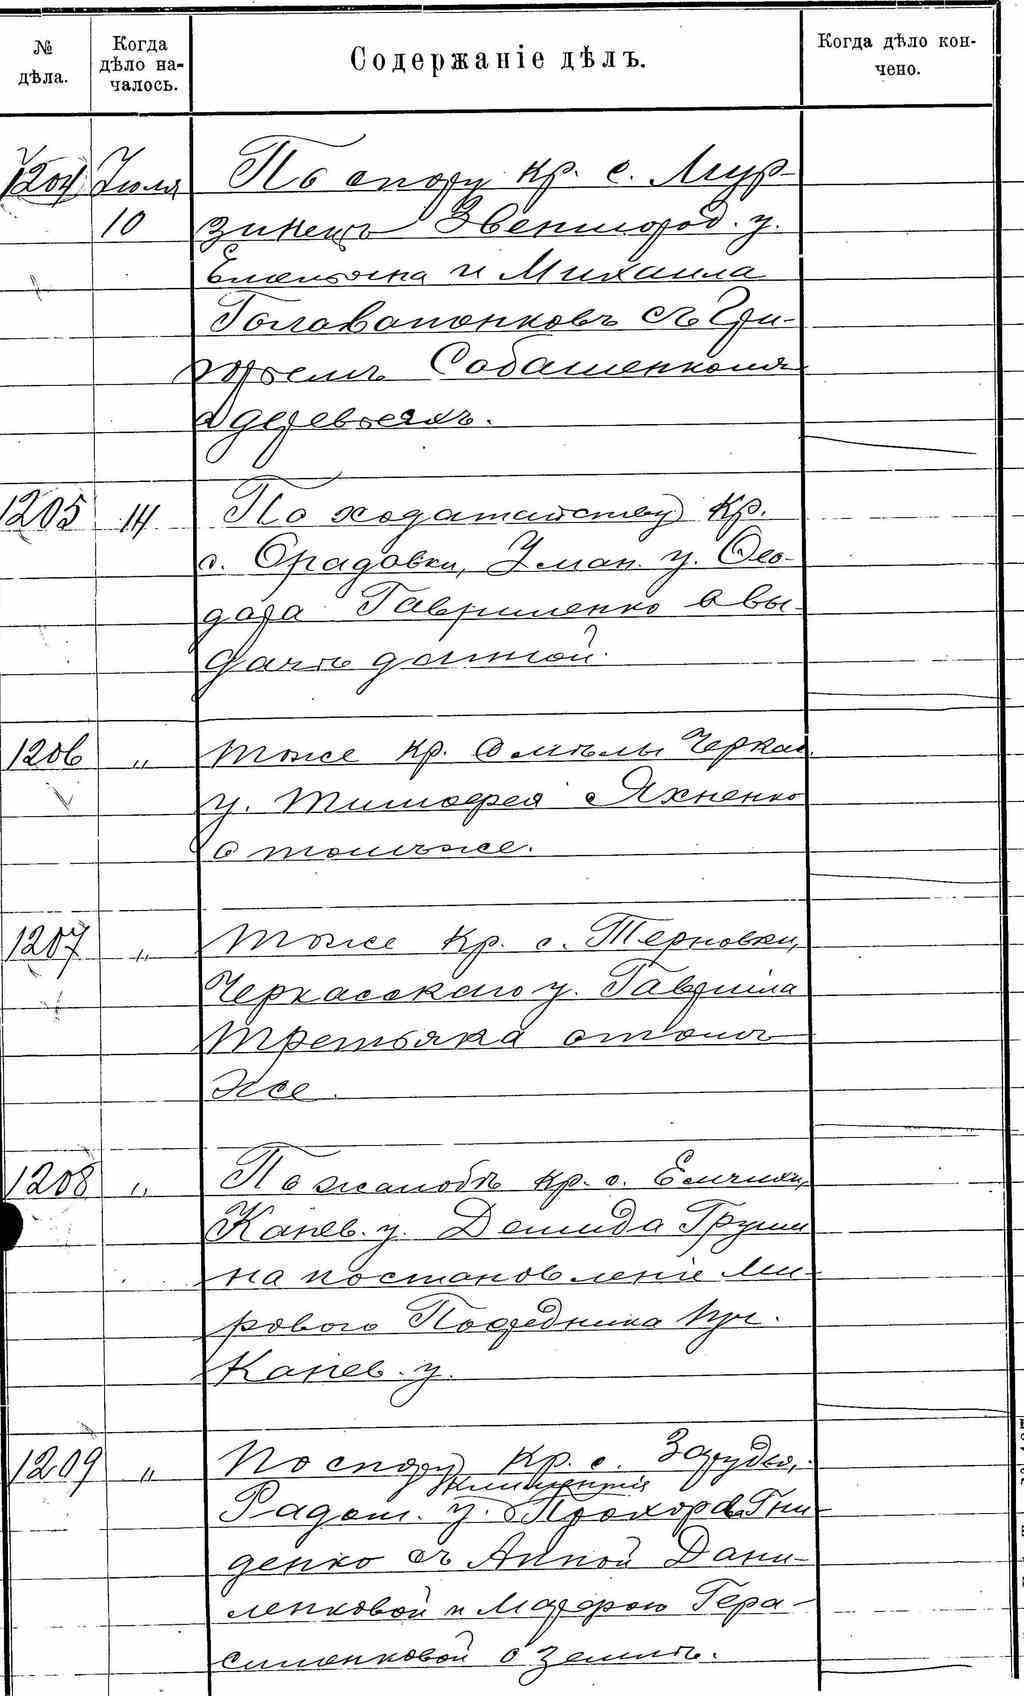 № дѣла. Когда дѣло началось. Содержаніе дѣлъ. Когда дѣло кончено.
1204 Іюля По спору кр. с. Мур-
10 зинецъ Звенигород. у.
Емельяна и Михаила
съ Гри-
горіемъ
о деревьяхъ.
1205 14 По ходатайству кр.
с. Орадовки, Уман. у. Ѳео-
дора Гавриленко о вы-
дачѣ данной.
1206 „ Тоже кр. Смѣлы Черкас.
у. Тимофея Яхненко
о томъ же.
1207 „ Тоже кр. с. Терновки,
Черкасскаго у. Гавріила
Третьяка о томъ
же.
1208 „ По жалобѣ кр. с. Емчихи,
Канев. у. Демида Груши
на постановленіе Ми-
рового Посредника уч.
Канев. у.
1209 „ По спору кр. с. Зарудья,
Климентія
Радом. у. Прохора Гни-
денко съ Анной Дани-
ленковой и Марфою Гера-
сименковой о землѣ.